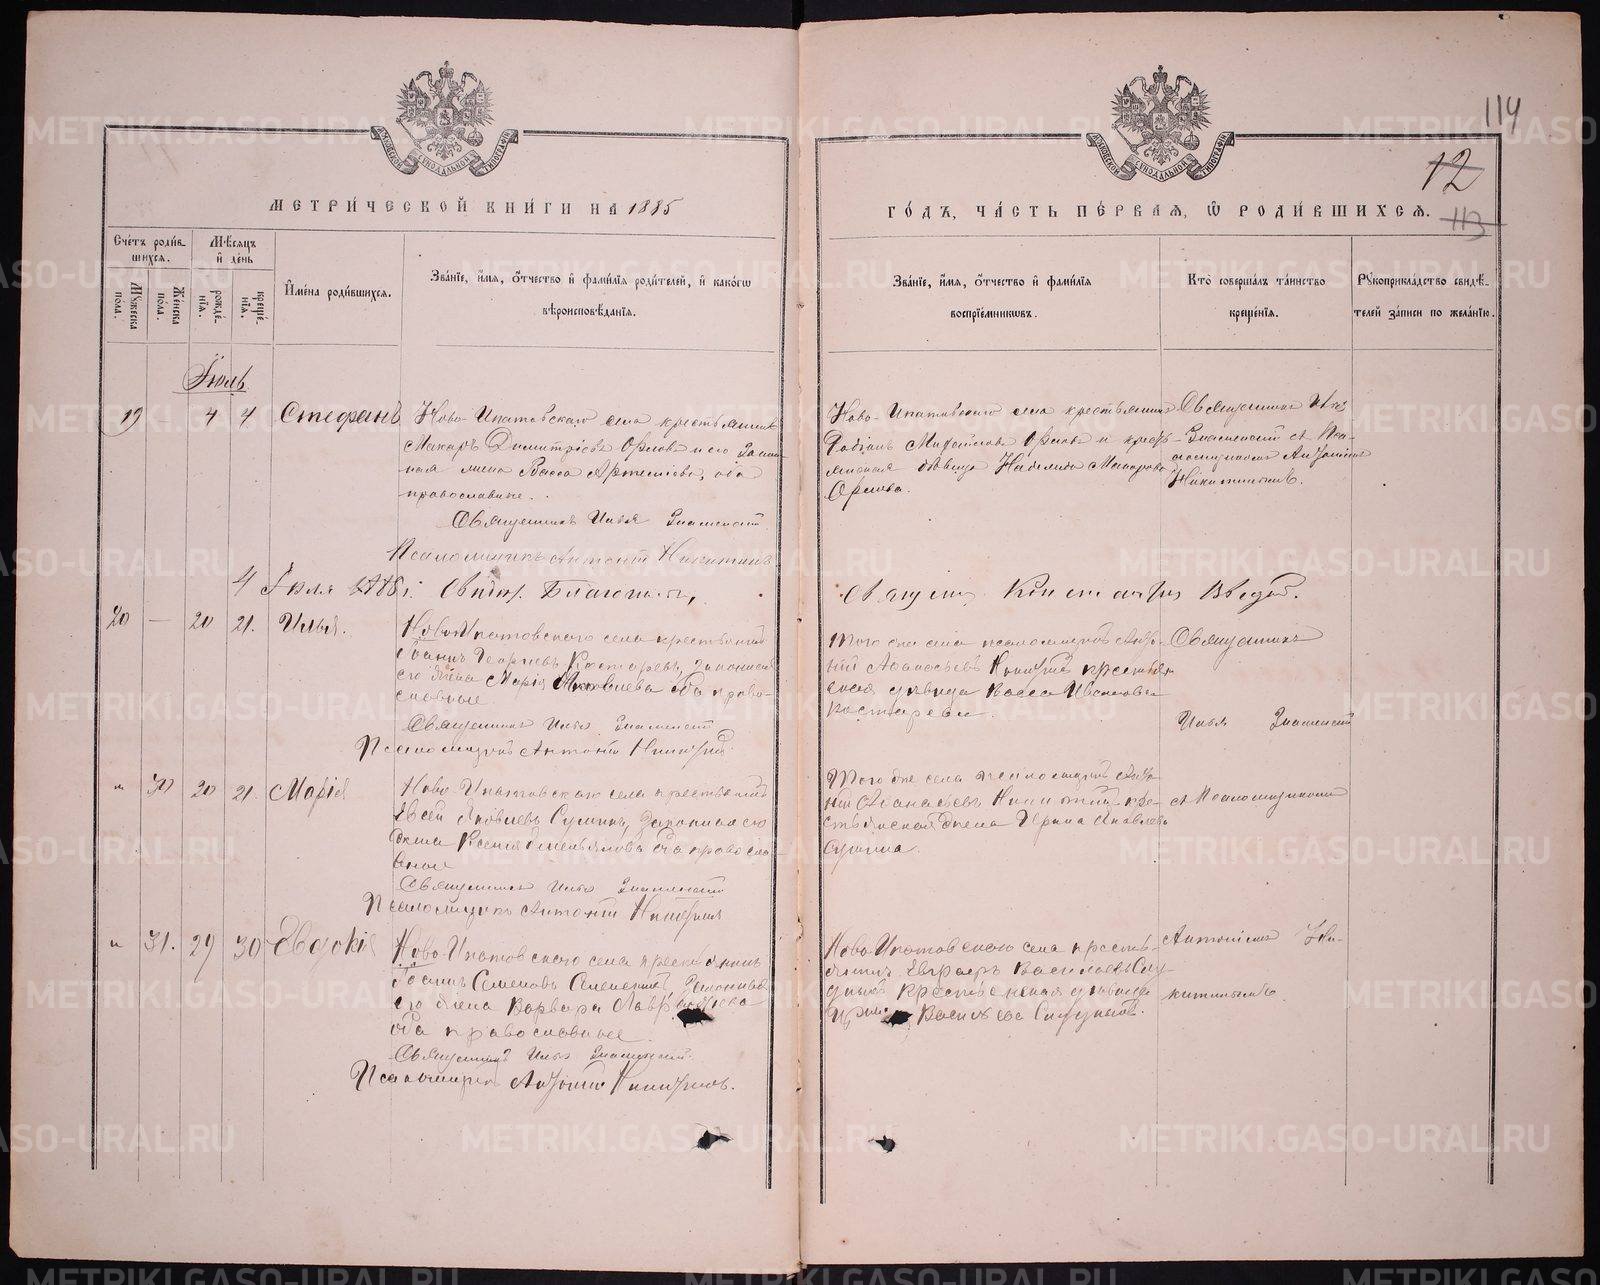 114
12
113
МЕТРИ́ЧЕСКОЙ КНИ́ГИ НА 1885
ГО́ДЪ, ЧА́СТЬ ПЕ́РВАЯ, Ѡ РОДИ́ВШИХСЯ.
Сче́тъ роди́вшихся.
Му́жеска по́ла.
Же́нска по́ла.
Мѣ́сяцъ и҆ де́нь
рожде́нїя.
креще́нїя.
И҆мена̀ роди́вшихся.
Зва́нїе, и҆́мя, ѻ҆́тчество и҆ фами́лїя роди́телей, и҆ како́гѡ
вѣроисповѣ́данїя.
Зва́нїе, и҆́мя, ѻ҆́тчество и҆ фами́лїя
воспрїе́мникѡвъ.
Кто̀ соверша́лъ та́инство
креще́нїя.
Рꙋкоприкла́дство свидѣ́-
телей за́писи по жела́нїю.
Іюль
19 4 4 Стефанъ
Ново-Ипатовскаго села крестьянинъ
Макаръ Димитріевъ Орловъ и его закон
ная жена Васса Артемьева, оба
православные.
Священникъ Илья Знаменскій
Псаломщикъ Антоній Никитинъ
Ново-Ипатовскаго села крестьянинъ
Орловъ и кресть-
янская дѣвица Макарова
Орлова.
Священникъ Илья
Знаменскій съ Пса-
ломщикомъ Антоніемъ
Никитинымъ.
4 Іюля 1885 г. Свидѣт. Благочин.,
Священ. Константинъ
20 — 20 21. Илья.
Ново-Ипатовскаго села крестьянинъ
Іоаннъ Георгіевъ Костаревъ, законная
его жена Марія Яковлева оба право-
славные
Священникъ Илья Знаменскій
Псаломщикъ Антоній Никитинъ
Того же села псаломщикъ Анто-
ній Аѳанасьевъ Никитинъ крестьян-
ская дѣвица Васса Иванова
Костарева.
Священникъ
Илья Знаменскій
" 30 20 21. Марія
Ново-Ипатовскаго села крестьянинъ
Евсей Яковлевъ Сушинъ, законная его
жена Ксенія оба православ
ные
Священникъ Илья Знаменскій
Псаломщикъ Антоній Никитинъ
Того же села псаломщикъ Анто-
ній Аѳанасьевъ Никитинъ кре-
стьянская жена Ирина Яковлева
Сушина.
съ Псаломщикомъ
" 31. 29 30 Евдокія
Ново-Ипатовскаго села крестьянинъ
Іоаннъ Семеновъ законная
его жена Варвара Лаврентьева
оба православные.
Священникъ Илья Знаменскій
Псаломщикъ Антоній Никитинъ.
Ново-Ипатовскаго села кресть-
янинъ Евграфъ Васильевъ
крестьянская дѣвица
Васильева
Антоніемъ Ни-
китинымъ.